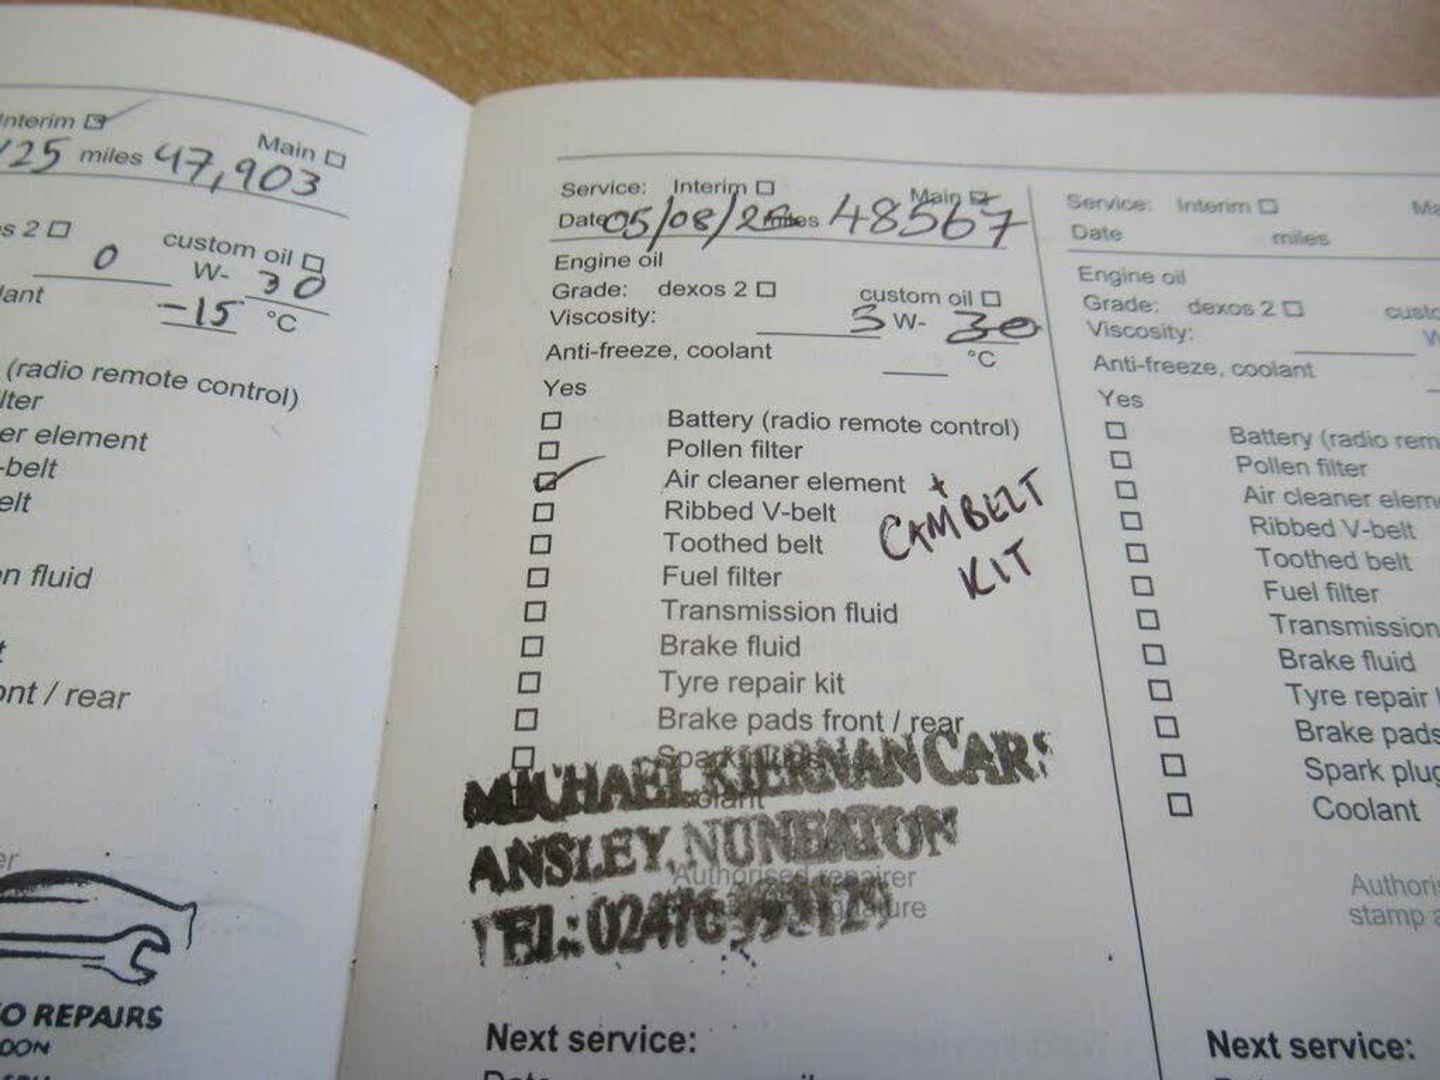 Interim
Main
25 miles 47,903
s 2
custom oil
0 W- 30
lant
-15 °C
(radio remote control)
lter
er element
-belt
elt
n fluid
ont / rear
er
O REPAIRS
Service: Interim Main
Date 05/08/25 miles 48567
Engine oil
Grade: dexos 2 custom oil
Viscosity: 3 W- 30
Anti-freeze, coolant °C
Yes
Battery (radio remote control)
Pollen filter
Air cleaner element +
CAMBELT
KIT
Ribbed V-belt
Toothed belt
Fuel filter
Transmission fluid
Brake fluid
Tyre repair kit
Brake pads front / rear
MICHAEL KIERNAN CARS
ANSLEY, NUNEATON
Authorised repairer
TEL: 02476
Next service:
Service: Interim Ma
Date miles
Engine oil
Grade: dexos 2 custo
Viscosity: W
Anti-freeze, coolant
Yes
Battery (radio rem
Pollen filter
Air cleaner elem
Ribbed V-belt
Toothed belt
Fuel filter
Transmission
Brake fluid
Tyre repair
Brake pads
Spark plug
Coolant
Authoris
stamp a
Next service: